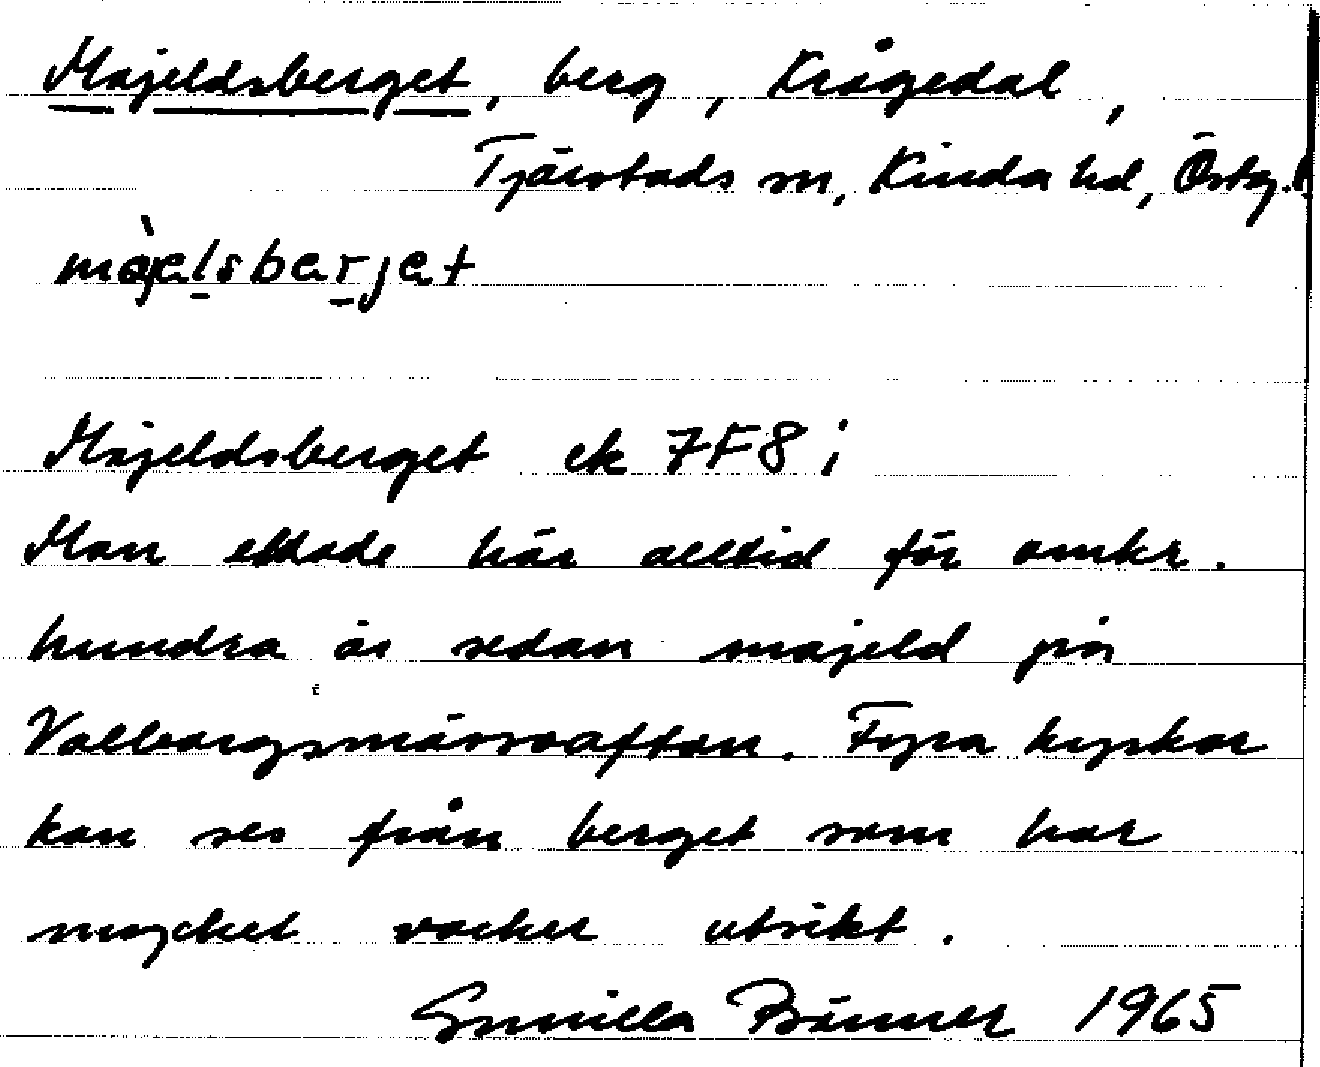 Majeldsberget, berg, Krågedal,
Tjärstads sn, Kinda hd, Östg.l
màjelsberjet
Majeldsberget ek 7F8i
Man eldade här alltid för omkr.
hundra år sedan majeld på
Valborgsmässoafton. Fyra kyrkor
kan ses från berget som har
mycket vacker utsikt.
Gunilla Bänner 1965